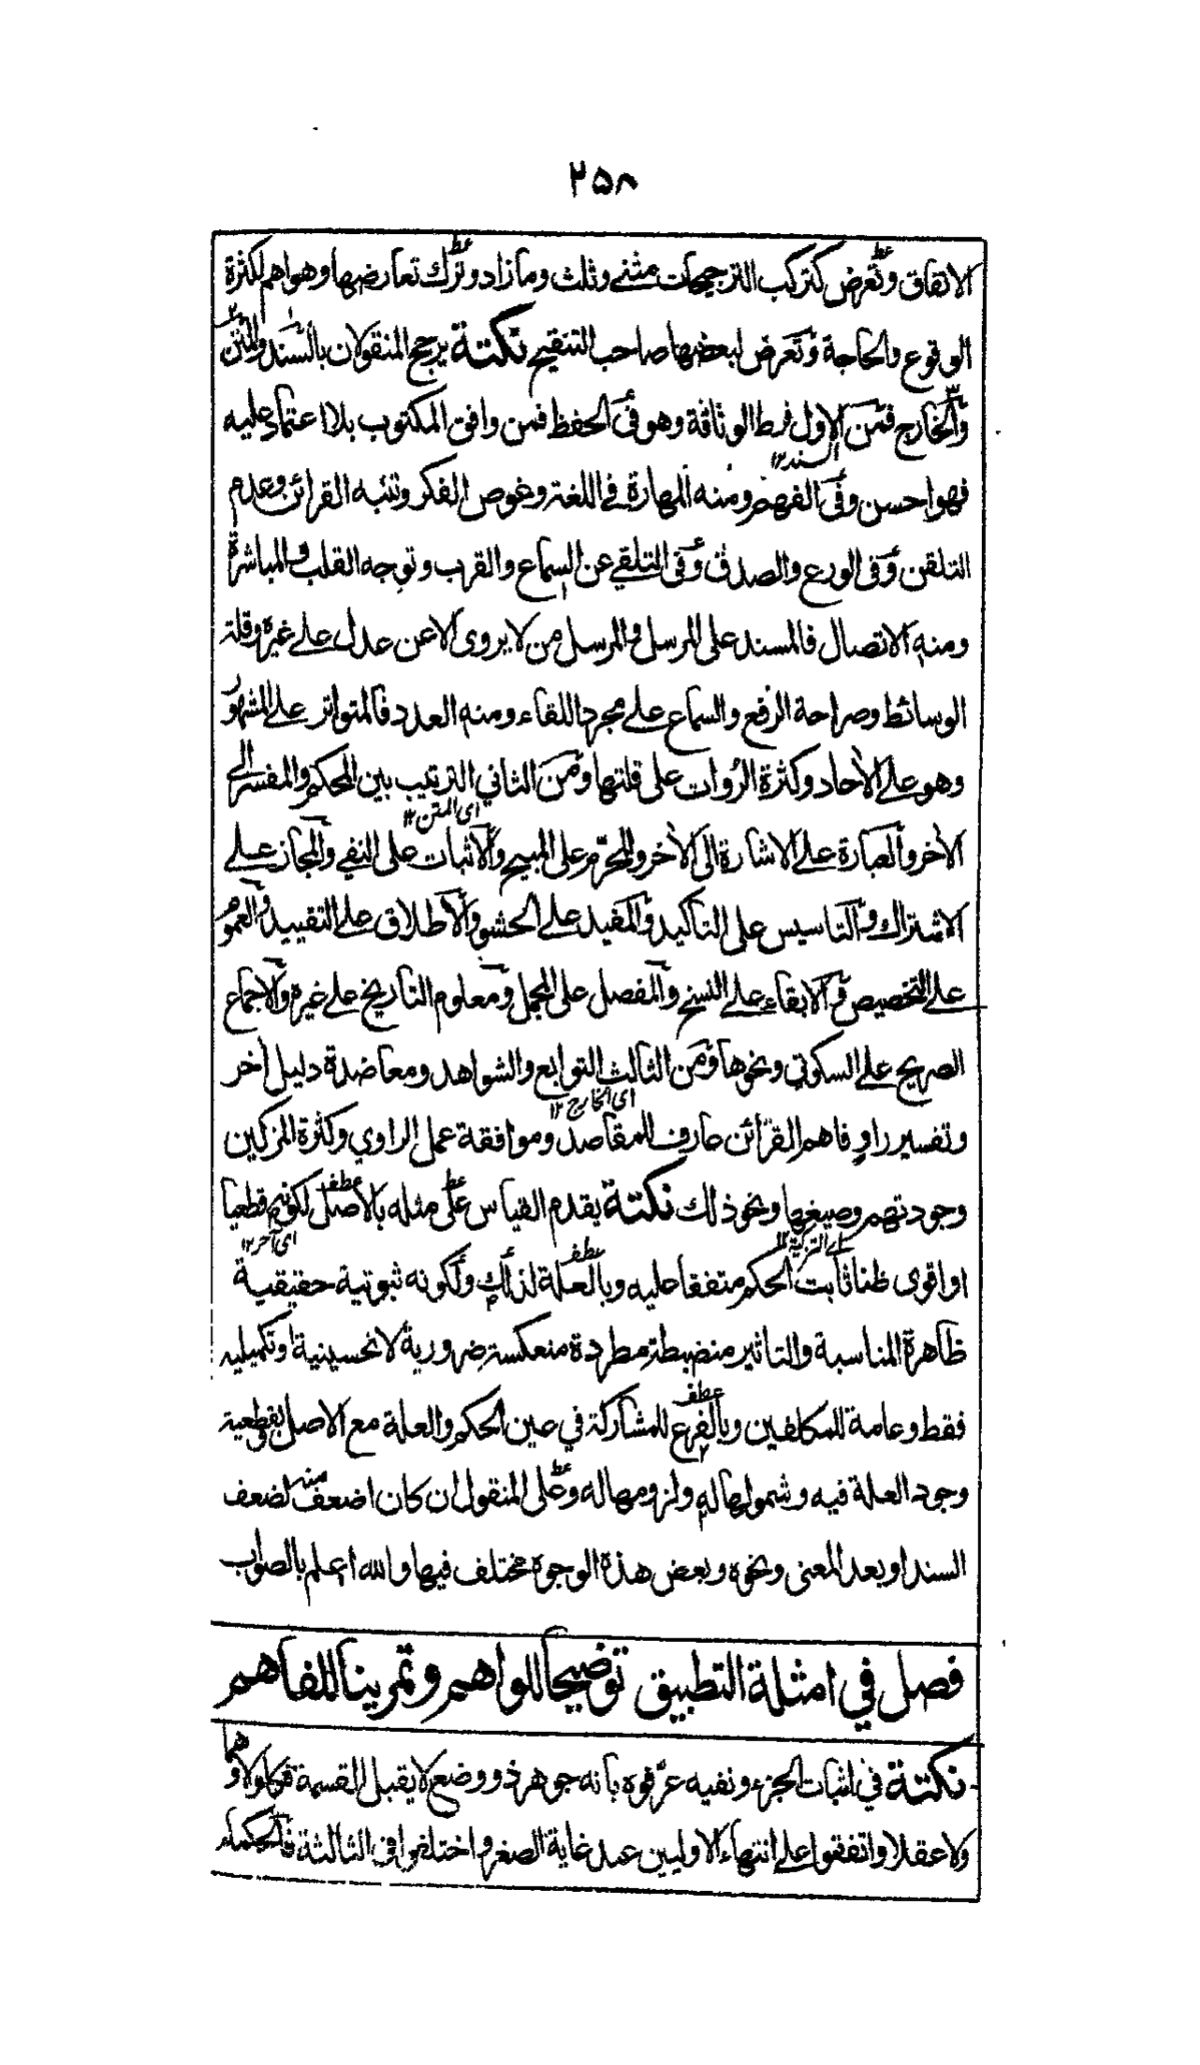 ٢٥٨
الاتفاق وتعرض كتركب الترجيحات مثنى وثلث وما زاد وترك تعارضها وهو اهم لكثرة
الوقوع والحاجة وتعرض لبعضها صاحب التنقيح نكتة يرجح المنقولان بالسند والمتن
والخارج فمن الاول فرط الوثاقة وهو في الحفظ فمن وافق المكتوب بلا اعتماد عليه
السند١٢
فهو احسن وفي الفهم ومنه المهارة في اللغة وغوص الفكر وتنبه القرائن وعدم
التلقن وفي الورع والصدق وفي التلقي عن السماع والقرب وتوجه القلب والمباشرة
ومنه الاتصال فالمسند على المرسل والمرسل من لا يروى الا عن عدل على غيره وقلة
الوسائط وصراحة الرفع والسماع على مجرد اللقاء ومنه العدد فالمتواتر على المشهور
وهو على الآحاد وكثرة الروات على قلتها ومن الثاني الترتيب بين المحكم والمفسر الى
اى المتن١٢
الآخر والعبارة على الاشارة الى الآخر والمحرّم على المبيح والاثبات على النفي والمجاز على
الاشتراك والتاسيس على التاكيد والمفيد على الحشو والاطلاق على التقييد والعموم
على التخصيص والابقاء على النسخ والمفصل على المجمل ومعلوم التاريخ على غيره والاجماع
الصريح على السكوتي ونحوها ومن الثالث التوابع والشواهد ومعاضدة دليل آخر
اى الخارج ١٢
وتفسير راوٍ فاهم القرائن عارف للمقاصد وموافقة عمل الراوي وكثرة المزكين
وجودتهم وصيغها ونحو ذلك نكتة يقدم القياس على مثله بالاصل لكونه قطعيا
اى التزكية١٢ اى آخر١٢
او اقوى ظنا ثابت الحكم متفقا عليه وبالعلة لذلك ولكونه ثبوتية حقيقية
ظاهرة المناسبة والتاثير منضبطة مطردة منعكسة ضرورية لا تحسينية او تكميلية
فقط وعامة للمكلفين وبالفرع للمشاركة في عين الحكم والعلة مع الاصل بقطعية
وجود العلة فيه وشمولها له ولزومها له وعلى المنقول ان كان اضعف منه لضعف
السند او بعد المعنى ونحوه وبعض هذه الوجوه مختلف فيها والله اعلم بالصواب
فصل في امثلة التطبيق توضيحا للواهم وتمرينا للفاهم
نكتة في اثبات الجزء ونفيه عرّفوه بانه جوهر ذو وضع لا يقبل القسمة فكا ولا وهما
ولا عقلا واتفقوا على انتهاء الاوليين عند غاية الصغر واختلفوا في الثالثة فالحكماء